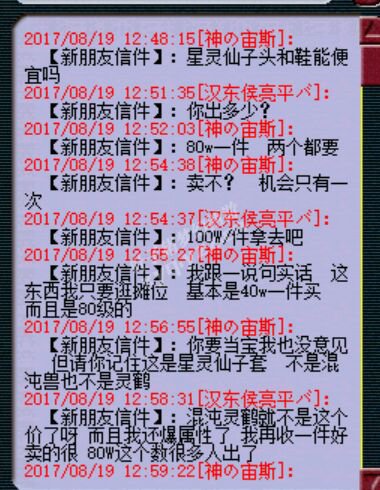 2017/08/19 12:48:15[神の宙斯]:
【新朋友信件】: 星灵仙子头和鞋能便
宜吗
2017/08/19 12:51:35[汉东侯亮平バ]:
【新朋友信件】: 你出多少?
2017/08/19 12:52:03[神の宙斯]:
【新朋友信件】: 80w一件 两个都要
2017/08/19 12:54:38[神の宙斯]:
【新朋友信件】: 卖不? 机会只有一
次
2017/08/19 12:54:37[汉东侯亮平バ]:
【新朋友信件】: 100W/件拿去吧
2017/08/19 12:55:27[神の宙斯]:
【新朋友信件】: 我跟一说句实话 这
东西我只要逛摊位 基本是40w一件买
而且是80级的
2017/08/19 12:56:55[神の宙斯]:
【新朋友信件】: 你要当宝我也没意见
但请你记住这是星灵仙子套 不是混
沌兽也不是灵鹤
2017/08/19 12:58:31[汉东侯亮平バ]:
【新朋友信件】: 混沌灵鹤就不是这个
价了呀 而且我还爆属性了 我再收一件好
卖的很 80W这个数很多人出了
2017/08/19 12:59:22[神の宙斯]: